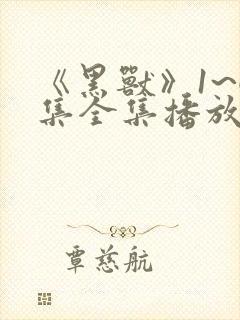 《黑獸》1~
集全集播放
覃慈航